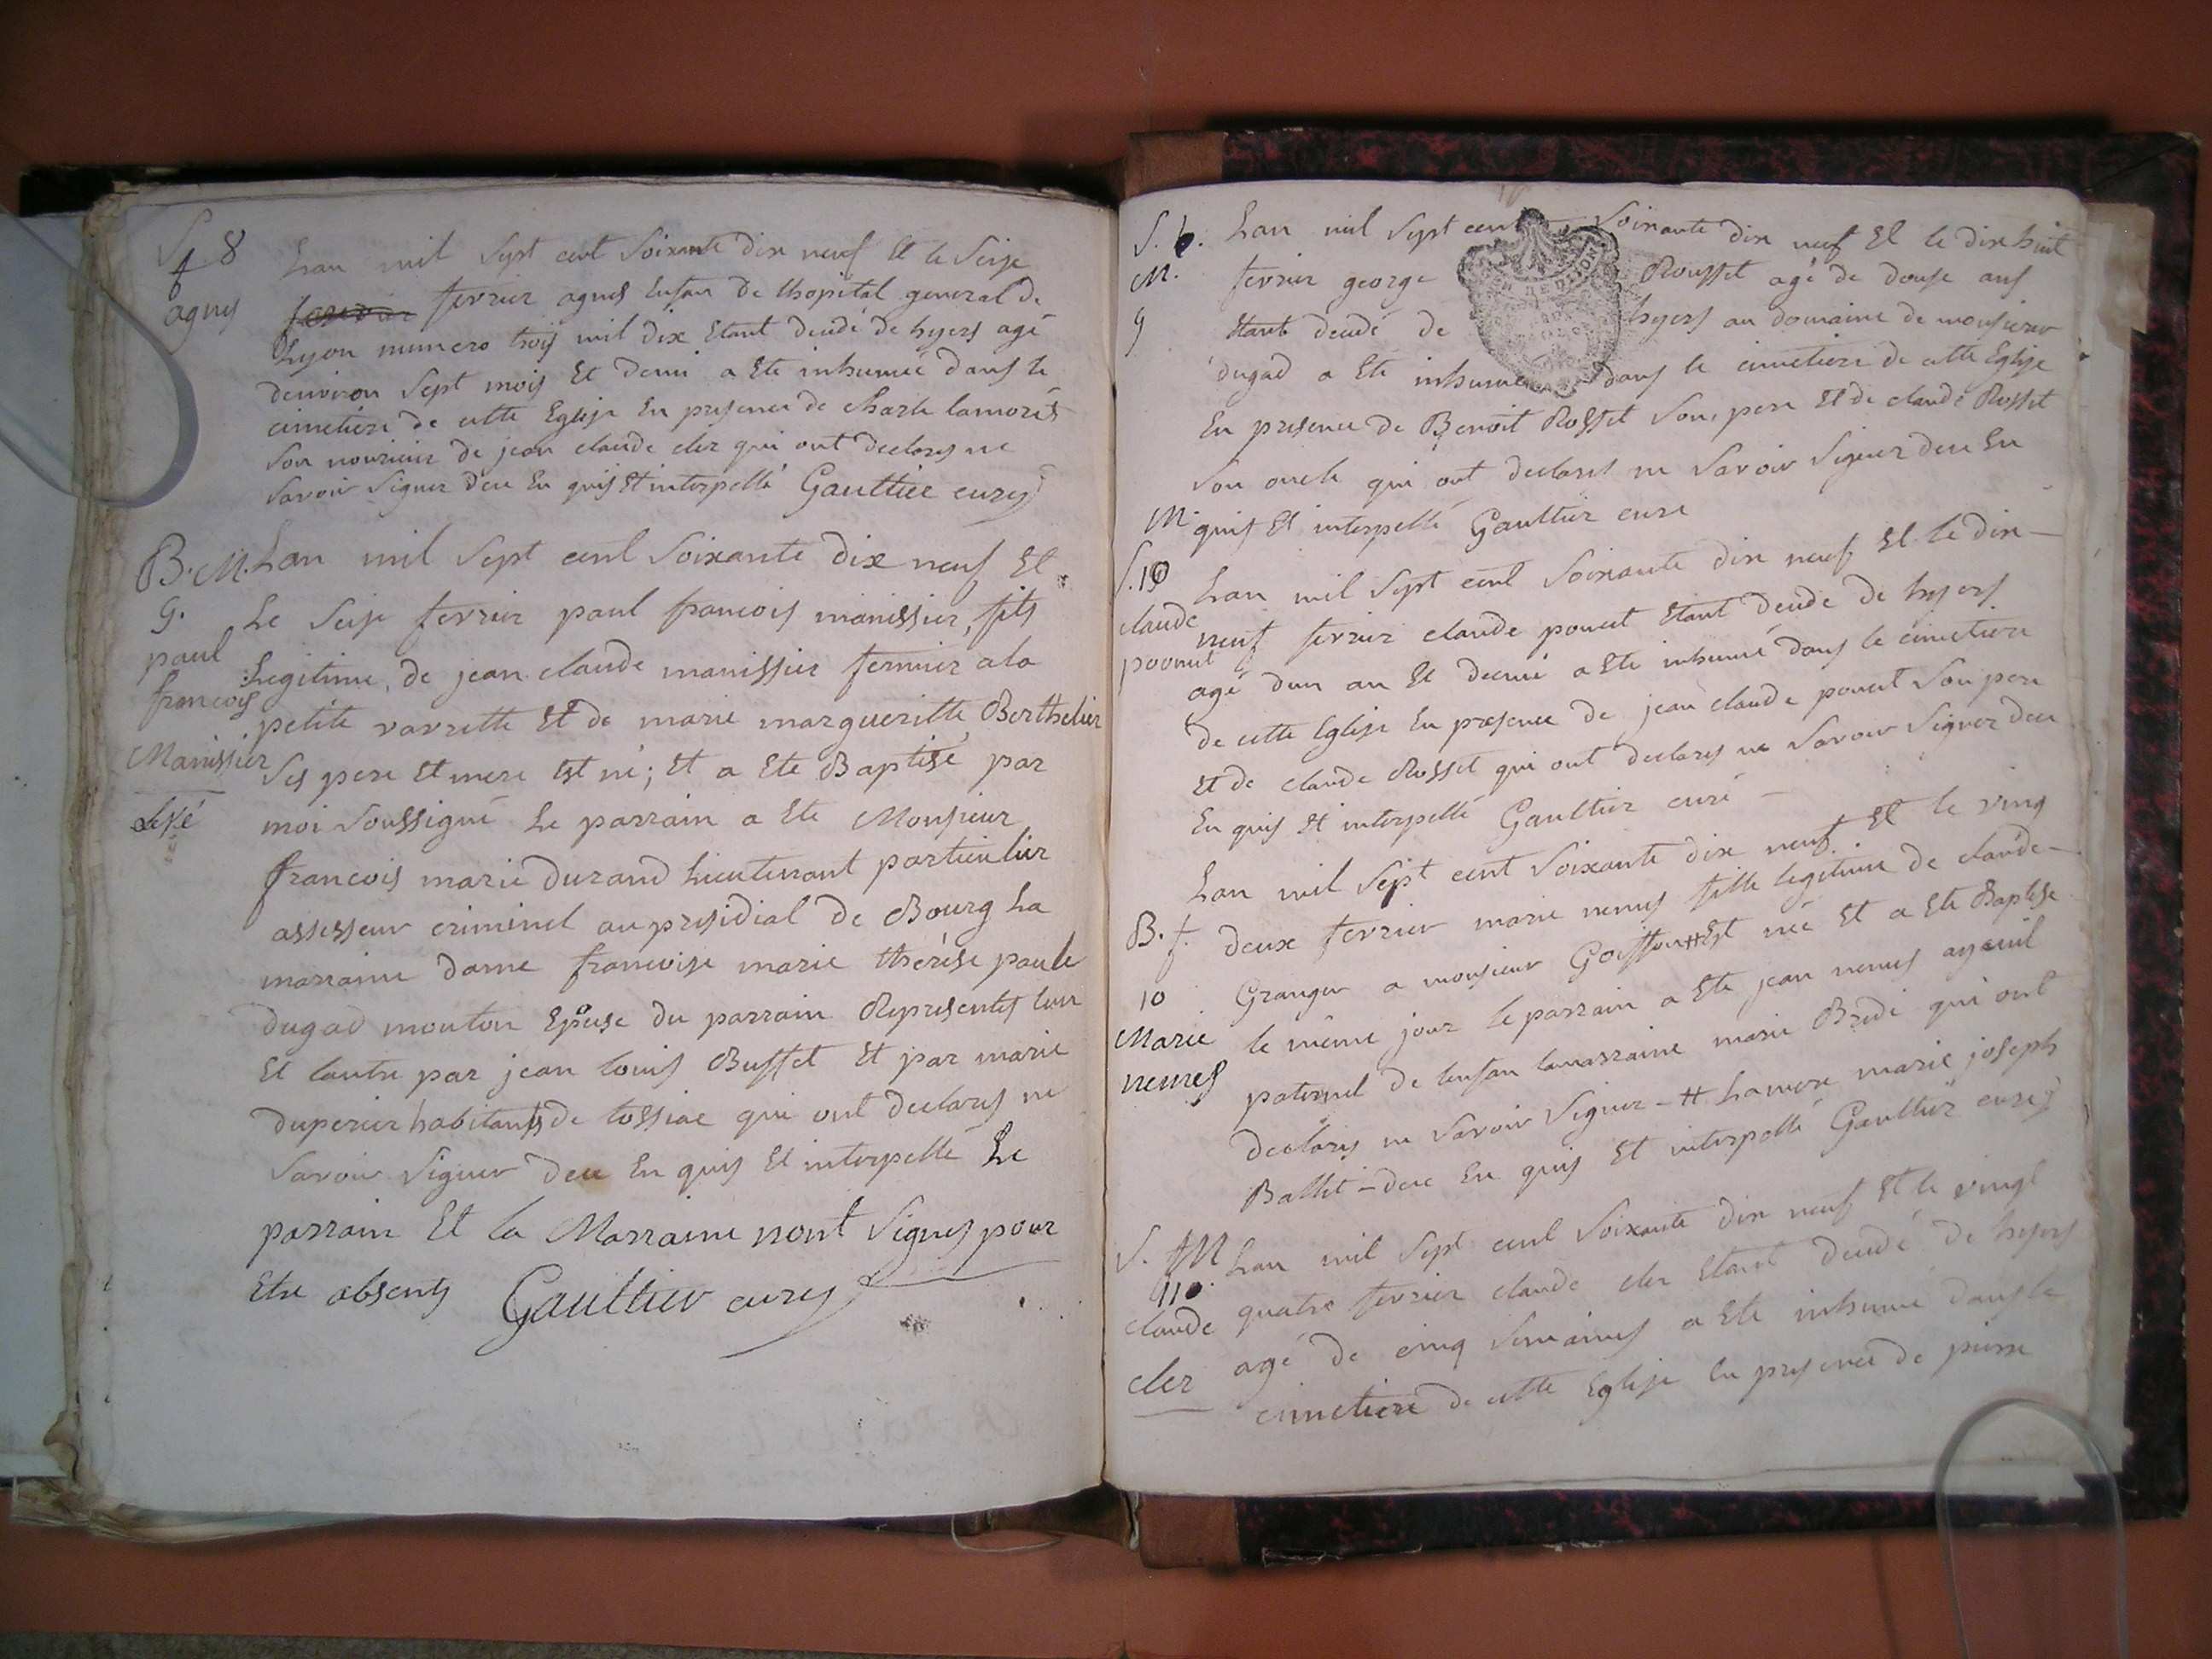 S. 8
f
agnes
Lan mil sept cent soixante dix neuf Et le seise
fevrier agnes Enfan de lhopital general de
Lyon numero trois mil dix Etant decedé de hyers agé
denviron sept mois Et demi a Ete inhumeé dans le
cimetiere de cette Eglise En presence de charle lamorés
son nouricier de jean claude cler qui ont declares ne
savoir signer deu En quis Et interpellé Gaultier cure
B. M.
9.
paul
francois
Manissier
Lan mil sept cent soixante dix neuf Et
Le seise fevrier paul francois manissier, fils
Legitime de jean claude manissier fermier a la
petite varrette Et de marie margueritte Berthelier
ses pere Et mere Est né; Et a Ete Baptisé par
moi soussigné Le parrain a Ete Monsieur
francois marie durand Lieutenant particulier
assesseur criminel au presidial de Bourg La
marraine dame francoise marie thérése paule
dugad mouton Epouse du parrain Representes lun
Et lautre par jean louis Buffet Et par marie
duperier habitants de tossiac qui ont declares ne
savoir signer deu En quis Et interpellé Le
parrain Et la Marraine nont signes pour
Etre absents Gaultier cure
S. 6.
M.
9
Lan mil sept cent soixante dix neuf Et le dix huit
fevrier george Rousset agé de douse ans
Etant decedé de hyers au domaine de monsieur
dugad a Ete inhumé dans le cimetiere de cette Eglise
En presence de Benoit Rosset son pere Et de claude Rosset
son oncle qui ont declares ne savoir signer deu En
quis Et interpellé Gaultier cure
M.
S. 10
claude
poncet
Lan mil sept cent soixante dix neuf Et le dix-
neuf fevrier claude poncet Etant decede de hyers
agé dun an Et demi a Ete inhumé dans le cimetiere
de cette Eglise En presence de jean claude poncet son pere
Et de claude Rosset qui ont declares ne savoir signer deu
En quis Et interpellé Gaultier curé -
B. f.
10
Marie
nemes
Lan mil sept cent soixante dix neuf Et le ving
deux fevrier marie nemes fille legitime de claude-
Granger a monsieur Goiffon # Est neé Et a Ete Baptise
le même jour le parrain a Ete jean nemes ayeuil
paternel de lenfan la marraine marie Bredi qui ont
declares ne savoir signer - # La mere marie joseph
Ballet - deu En quis Et interpellé Gaultier cure
S. M
11.
claude
cler
Lan mil sept cent soixante dix neuf Et le vingt
quatre fevrier claude cler Etant decedé de hyers
agé de cinq semaines a Ete inhumé dans le
cimetiere de cette Eglise En presence de pierre